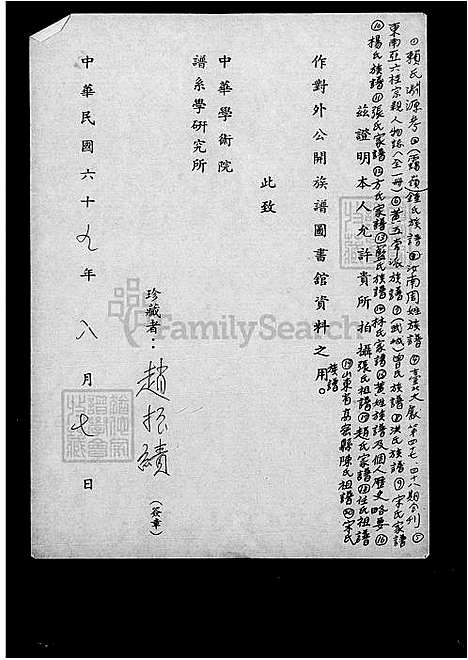 ①賴氏淵源考②(霞嶺)鍾氏族譜③汝南周姓族譜④臺北文獻第四七、四十八期合刊⑤
東南亞六桂宗親人物誌(全一冊)⑥黃五常派族譜⑦(武城)曾氏族譜⑧洪氏族譜⑨宋氏家譜
⑩楊氏族譜⑪張氏家譜⑫方氏家譜⑬藍氏族譜⑭林氏家譜⑮黃姓族譜及個人歷史略要⑯
茲證明本人允許貴所拍攝張氏祖譜⑰趙氏家譜⑱任氏祖譜
⑲山東省高密縣陳氏祖譜⑳宋氏
族譜
作對外公開族譜圖書館資料之用。
此致
中華學術院
譜系學研究所
珍藏者：趙振績(簽章)
中華民國六十九年八月七日
FamilySearch